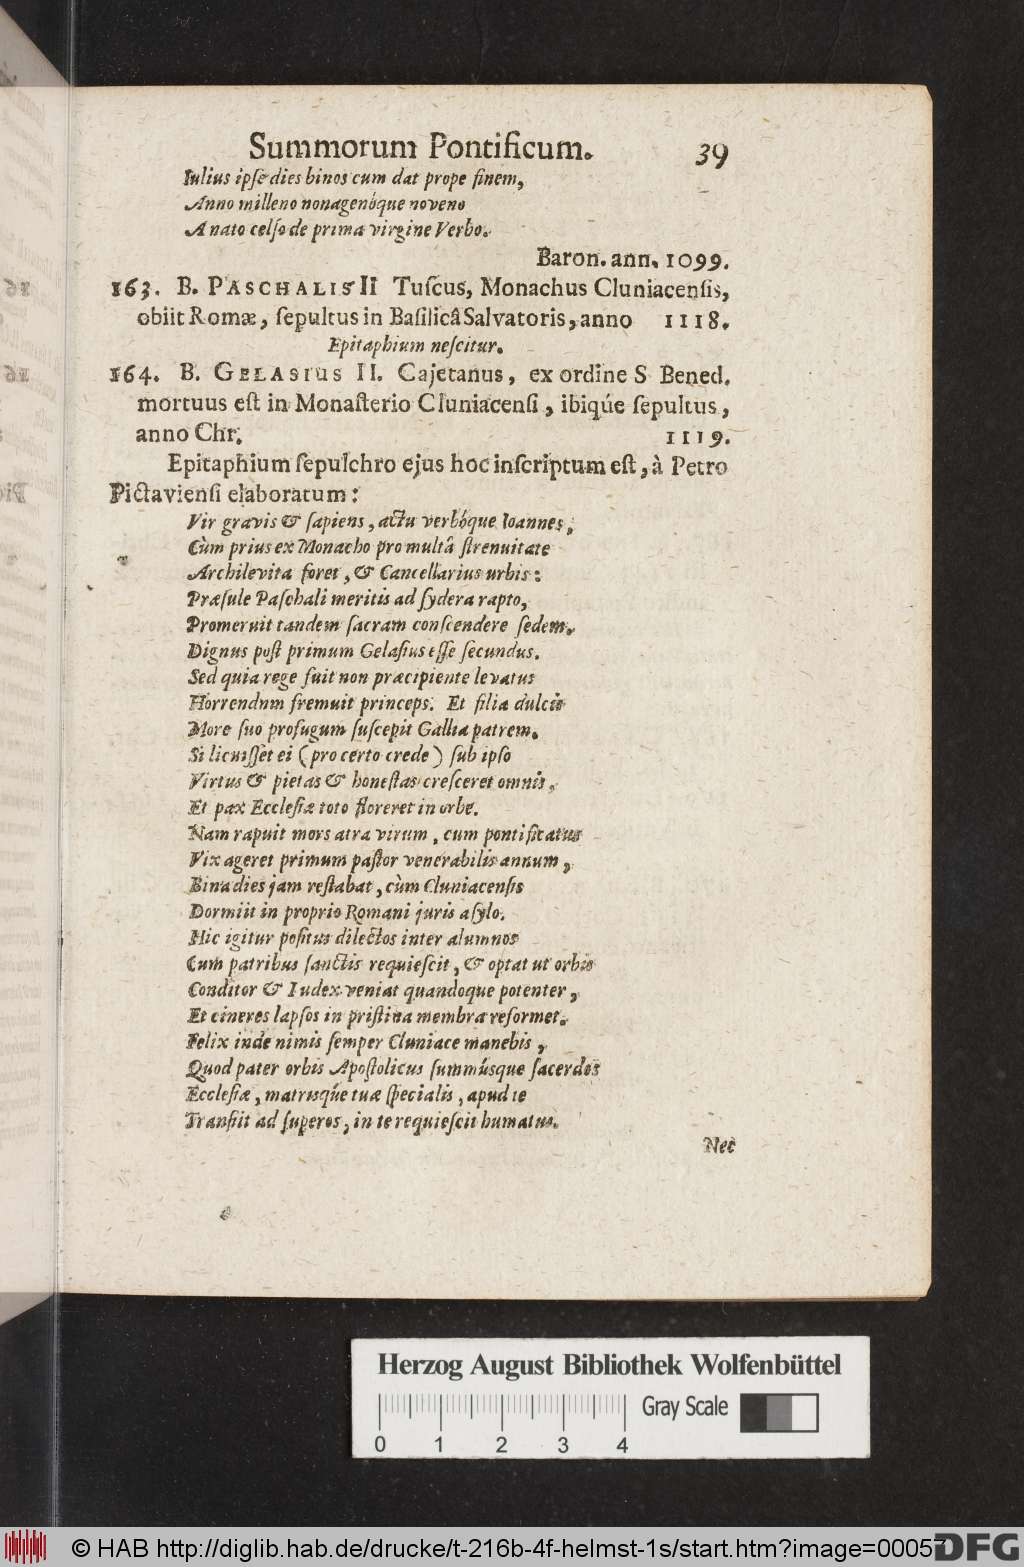 Summorum Pontificum. 39
Iulius ipse dies binos cum dat prope finem,
Anno milleno nonagenóque noveno
A nato celso de prima virgine Verbo.
Baron. ann. 1099.
163. B. PASCHALIS II Tuscus, Monachus Cluniacensis,
obiit Romæ, sepultus in Basilicâ Salvatoris, anno 1118.
Epitaphium nescitur.
164. B. GELASIUS II. Cajetanus, ex ordine S Bened.
mortuus est in Monasterio Cluniacensi, ibiqúe sepultus,
anno Chr. 1119.
Epitaphium sepulchro ejus hoc inscriptum est, à Petro
Pictaviensi elaboratum:
Vir gravis & sapiens, actu verbóque Ioannes,
Cùm prius ex Monacho pro multâ strenuitate
Archilevita foret, & Cancellarius urbis:
Præsule Paschali meritis ad sydera rapto,
Promeruit tandem sacram conscendere sedem.
Dignus post primum Gelasius esse secundus.
Sed quia rege fuit non præcipiente levatus
Horrendnm fremuit princeps. Et filia dulcis
More suo profugum suscepit Gallia patrem.
Si licuisset ei (pro certo crede) sub ipso
Virtus & pietas & honestas cresceret omnis,
Et pax Ecclesiæ toto floreret in orbe.
Nam rapuit mors atra virum, cum pontificatus
Vix ageret primum pastor venerabilis annum,
Bina dies jam restabat, cùm Cluniacensis
Dormiit in proprio Romani juris asylo.
Hic igitur positus dilectos inter alumnos
Cum patribus sanctis requiescit, & optat ut orbis
Conditor & Iudex veniat quandoque potenter,
Et cineres lapsos in pristina membra reformet.
Felix inde nimis semper Cluniace manebis,
Quod pater orbis Apostolicus summúsque sacerdos
Ecclesiæ, matrisqúe tuæ specialis, apud te
Transiit ad superos, in te requiescit humatus.
Nec
Herzog August Bibliothek Wolfenbüttel
Gray Scale
0 1 2 3 4
© HAB http://diglib.hab.de/drucke/t-216b-4f-helmst-1s/start.htm?image=00057
DFG